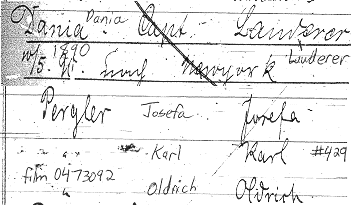 Dania Dania Capt. Landerer
1890 Landerer
w/5. 91. nach Newyork
Pergler Josefa Josefa
" " Karl Karl #429
film 0473092
" Oldrich Oldrich